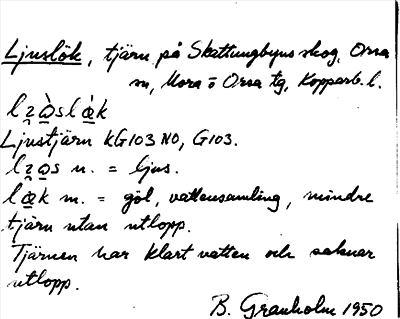 Ljuslök, tjärn på Skattungbyns skog, Orsa
sn, Mora o Orsa tg, Kopparb. l.
Ljustjärn KG103 NO, G103.
n. = ljus.
m. = göl, vattensamling, mindre
tjärn utan utlopp.
Tjärnen har klart vatten och saknar
utlopp.
B. Granholm 1950